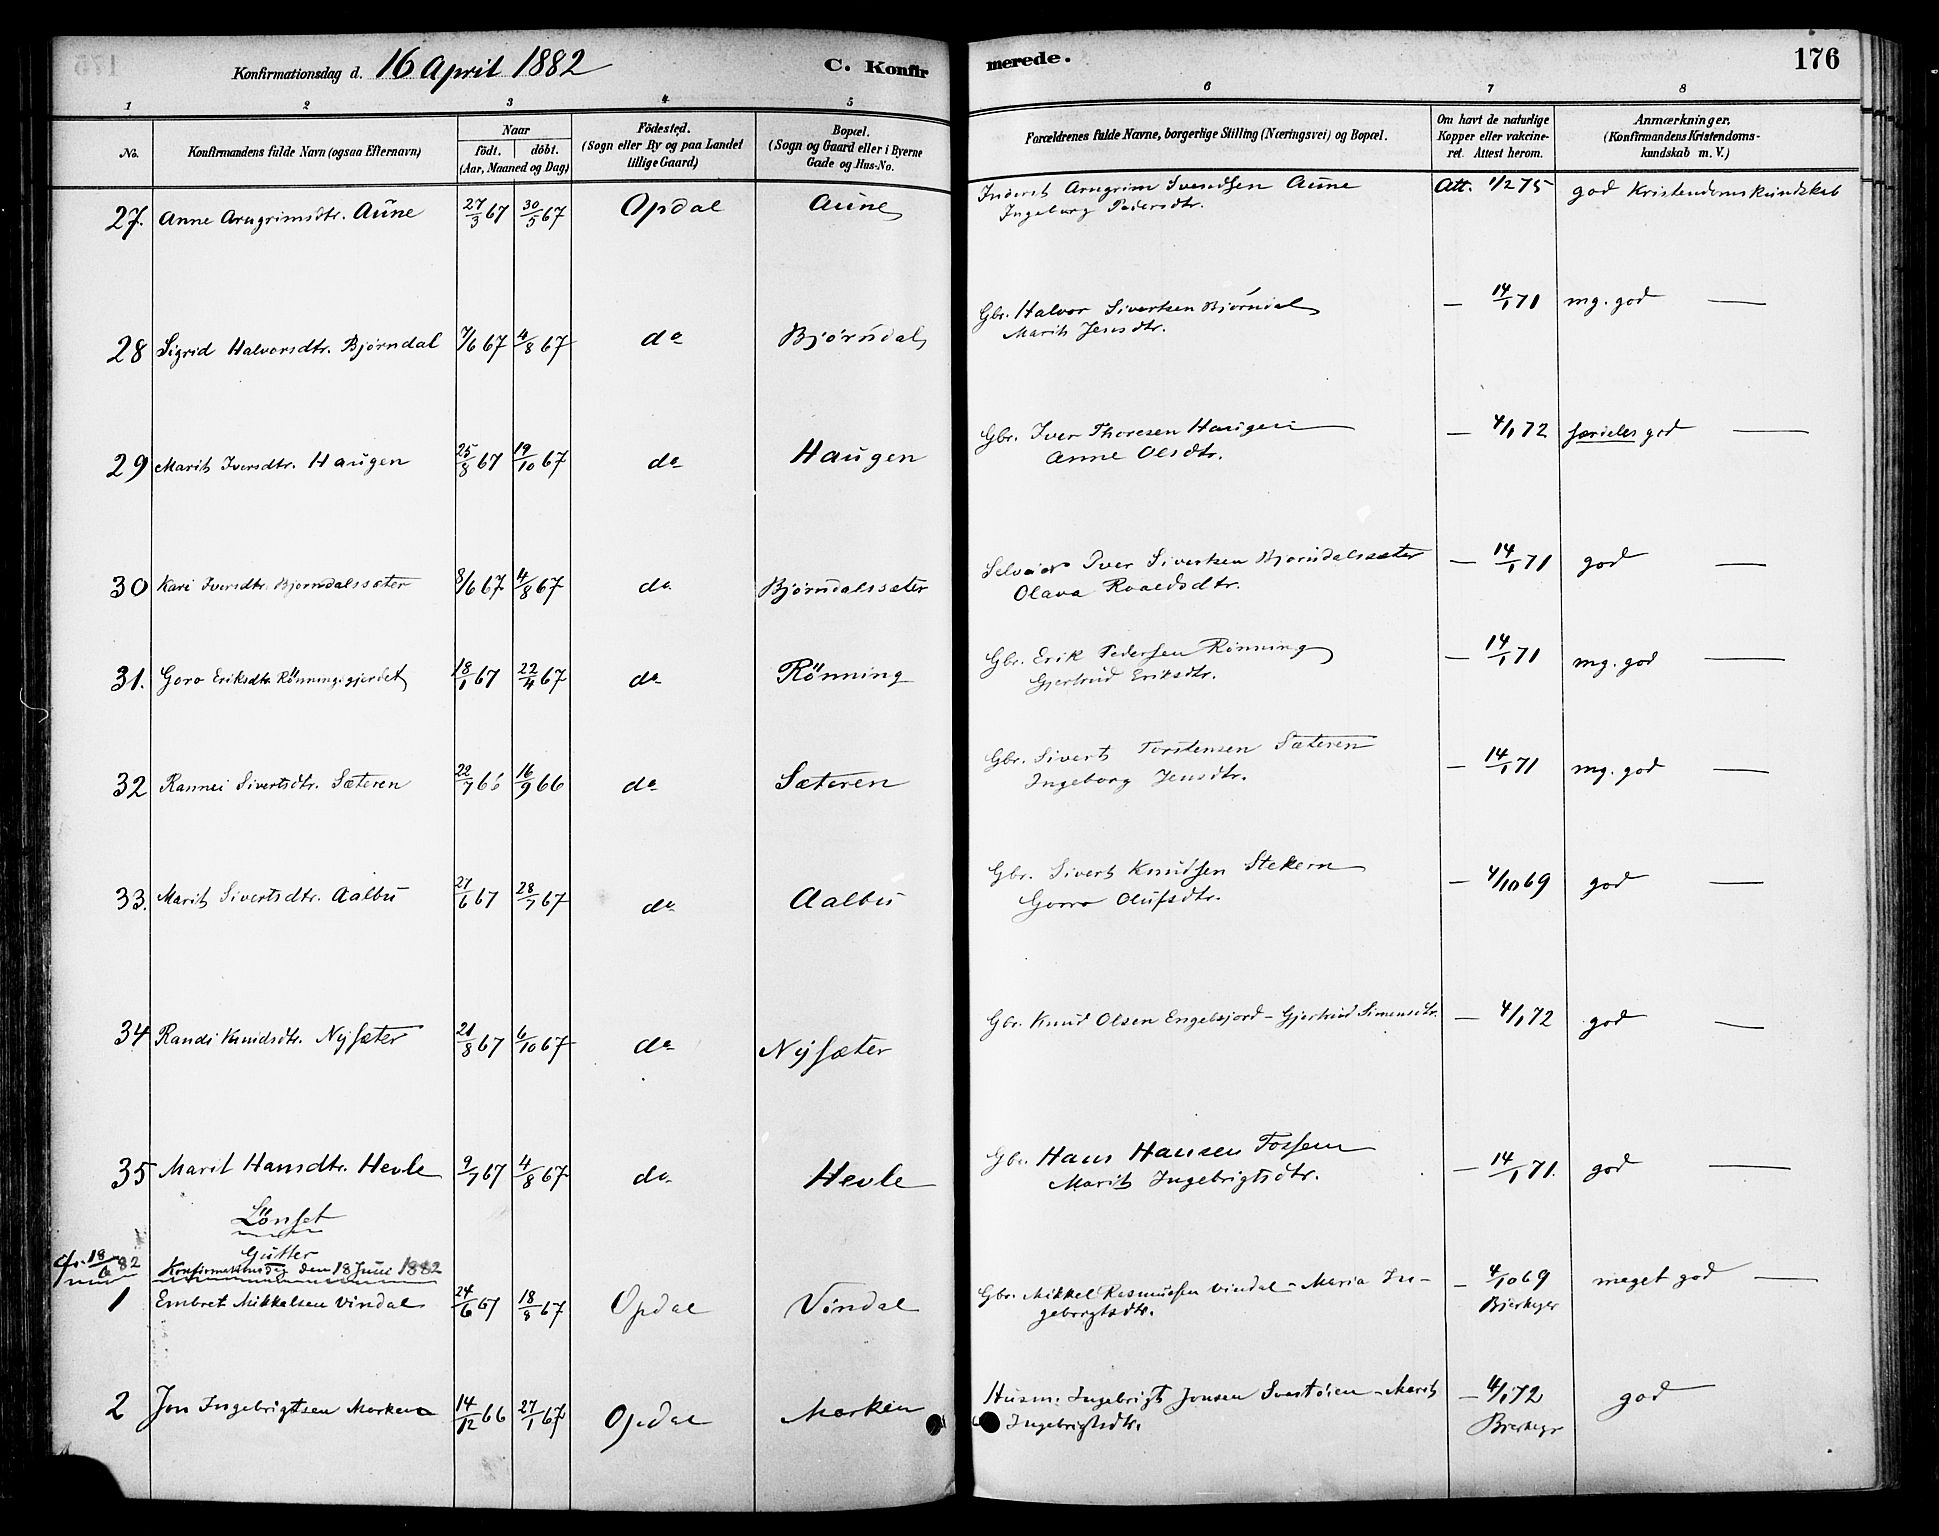 Konfirmationsdag d. 16 April 1882 C. Konfirmerede. 176
1 2 3 4 5 6 7 8
No. Konfirmandens fulde Navn (ogsaa Efternavn) Naar födt. döbt. (Aar, Maaned og Dag) Födested. (Sogn eller By og paa Landet tillige Gaard) Bopæl. (Sogn og Gaard eller i Byerne Gade og Hus-No. Forældrenes fulde Navne, borgerlige Stilling (Næringsvei) og Bopæl. Om havt de naturlige Kopper eller vakcineret. Attest herom. Anmærkninger. (Konfirmandens Kristendomskundskab m. V.)
27. Anne Arngrimsdtr. Aune 27/3 67 30/5 67 Opdal Aune Inderst Arngrim Svendsen Aune Att. 1/2 75 god Kristendomskundskab
Ingeborg Pedersdtr.
28 Sigrid Halvorsdtr. Bjørndal 7/6 67 4/8 67 do Bjørndal Gbr. Halvor Sivertsen Bjørndal — 14/1 71 mg. god —
Marit Jensdtr.
29 Marit Iversdtr. Haugen 25/8 67 19/10 67 do Haugen Gbr. Iver Thoresen Haugen — 4/1 72 særdeles god —
Anne Olsdtr.
30 Kari Iversdtr. Bjørndalssæter 8/6 67 4/8 67 do Bjørndalssæter Selveier Iver Sivertsen Bjørndalssæter — 14/1 71 god —
Olava Roaldsdtr.
31. Goro Eriksdtr Rönningsgjerdet 18/1 67 22/4 67 do Rönning Gbr. Erik Pedersen Rönning — 14/1 71 mg. god —
Gjertrud Eriksdtr.
32 Rannei Sivertsdtr. Sæteren 22/7 66 16/9 66 do Sæteren Gbr. Sivert Torstensen Sæteren — 14/1 71 mg. god —
Ingeborg Jensdtr.
33. Marit Sivertsdtr. Aalbu 27/6 67 28/7 67 do Aalbu Gbr. Sivert Knudsen Stekern — 4/10 69 god —
Gorro Olufsdtr.
34 Randi Knudsdtr. Nysæter 21/8 67 6/10 67 do Nysæter Gbr. Knud Olsen Engelsjord - Gjertrud Simensdtr. — 4/1 72 god —
35 Marit Hansdtr. Hevle 9/7 67 4/8 67 do Hevle Gbr. Hans Hansen Fossem — 14/1 71. god —
Marit Ingebrigtsdtr.
Lönset
Gutter
18/6 82 Konfirmationsdag den 18 Juni 1882
1 Embret Mikkelsen Vindal 24/6 67 18/8 67 Opdal Vindal Gbr. Mikkel Rasmussen Vindal - Maria In- — 4/10 69 meget god —
geborgtsdtr. Bjerkager
2 Jon Ingebrigtsen Morken 14/12 66 27/1 67 Opdal Morken Husm. Ingebrigt Jonsen Svartöien - Marit — 4/1 72 god
Ingebrigtsdtr.